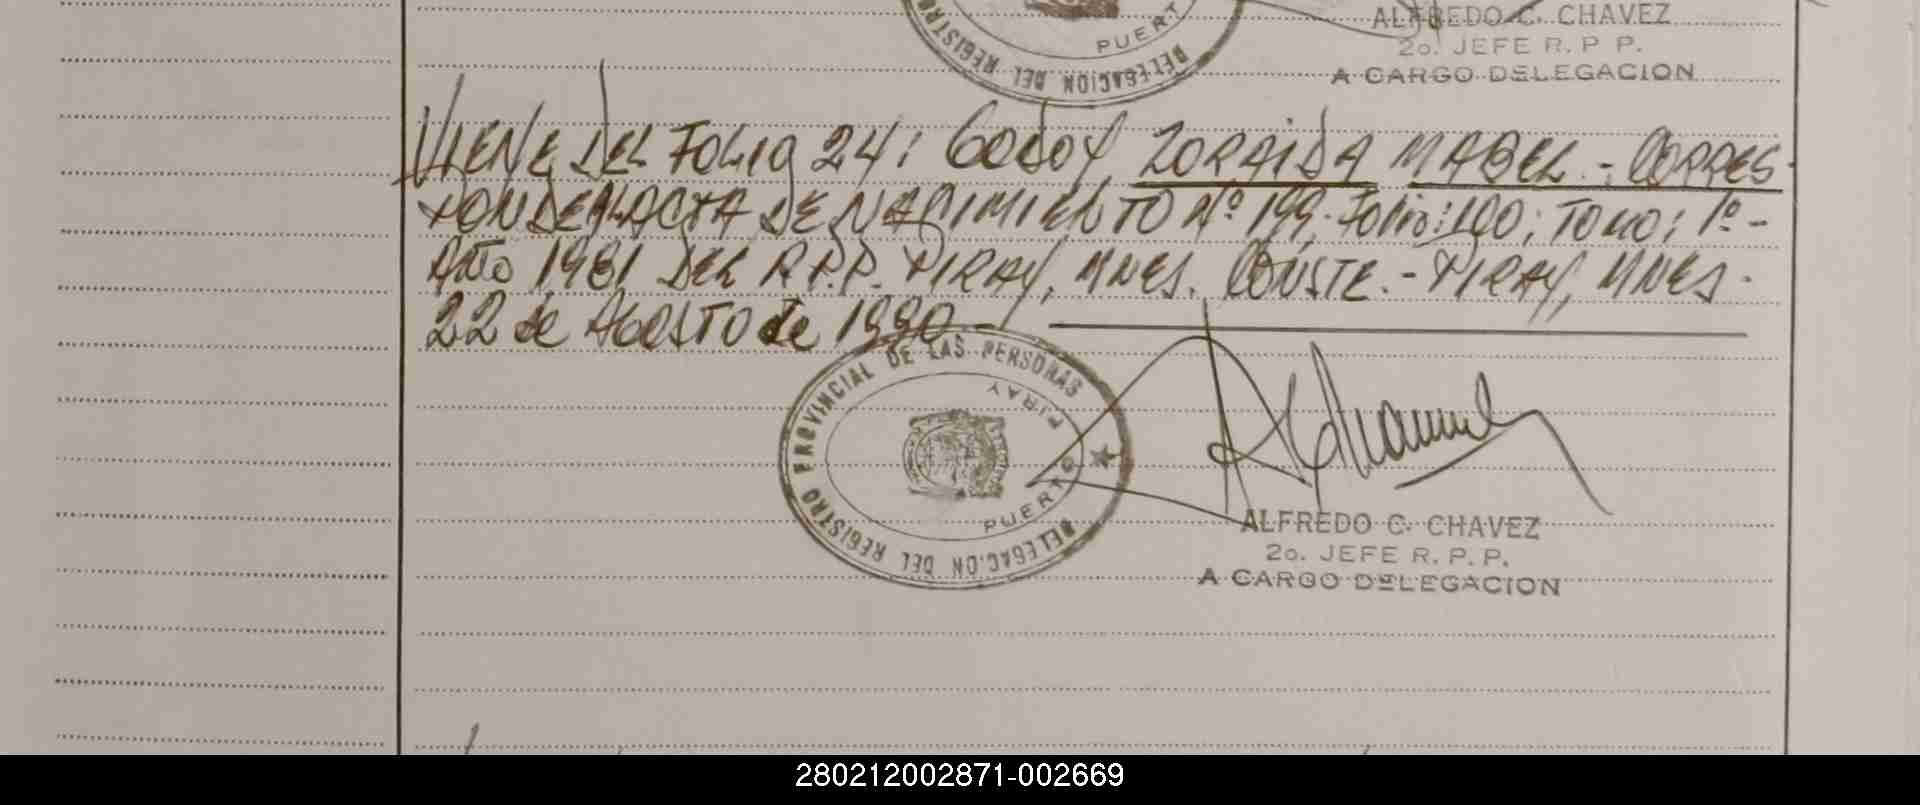 ALFREDO C. CHAVEZ
2o. JEFE R. P. P.
A CARGO DELEGACION
DELEGACION DEL REGISTRO
PUERT
VIENE DEL FOLIO 24: GODOY, ZORAIDA MABEL.- CORRES-
PONDE AL ACTA DE NACIMIENTO Nº 199; Folio: 100; TOMO: 1º-
Año 1981 DEL R.P.P. PIRAY, MNES. CONSTE.- PIRAY, MNES.
22 de AGOSTO de 1990.-
DELEGACION DEL REGISTRO PROVINCIAL DE LAS PERSONAS
PUERTO PIRAY
ALFREDO C. CHAVEZ
2o. JEFE R. P. P.
A CARGO DELEGACION
280212002871-002669